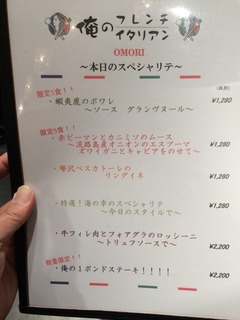 俺の フレンチ
イタリアン
OMORI
～本日のスペシャリテ～
(税抜)
限定5食！！
・蝦夷鹿のポワレ ¥1,280
～ソース グランヴヌール～
限定5食！！
・赤ピーマンとカニミソのムース ¥1,280
～淡路島産オニオンのエスプーマ
ズワイガニとキャビアをのせて～
・贅沢ペスカトーレの ¥1,280
リングイネ
・特選！海の幸のスペシャリテ ¥1,280
～今日のスタイルで～
・牛フィレ肉とフォアグラのロッシーニ ¥2,200
～トリュフソースで～
数量限定！！
・俺の１ポンドステーキ！！！！ ¥2,200